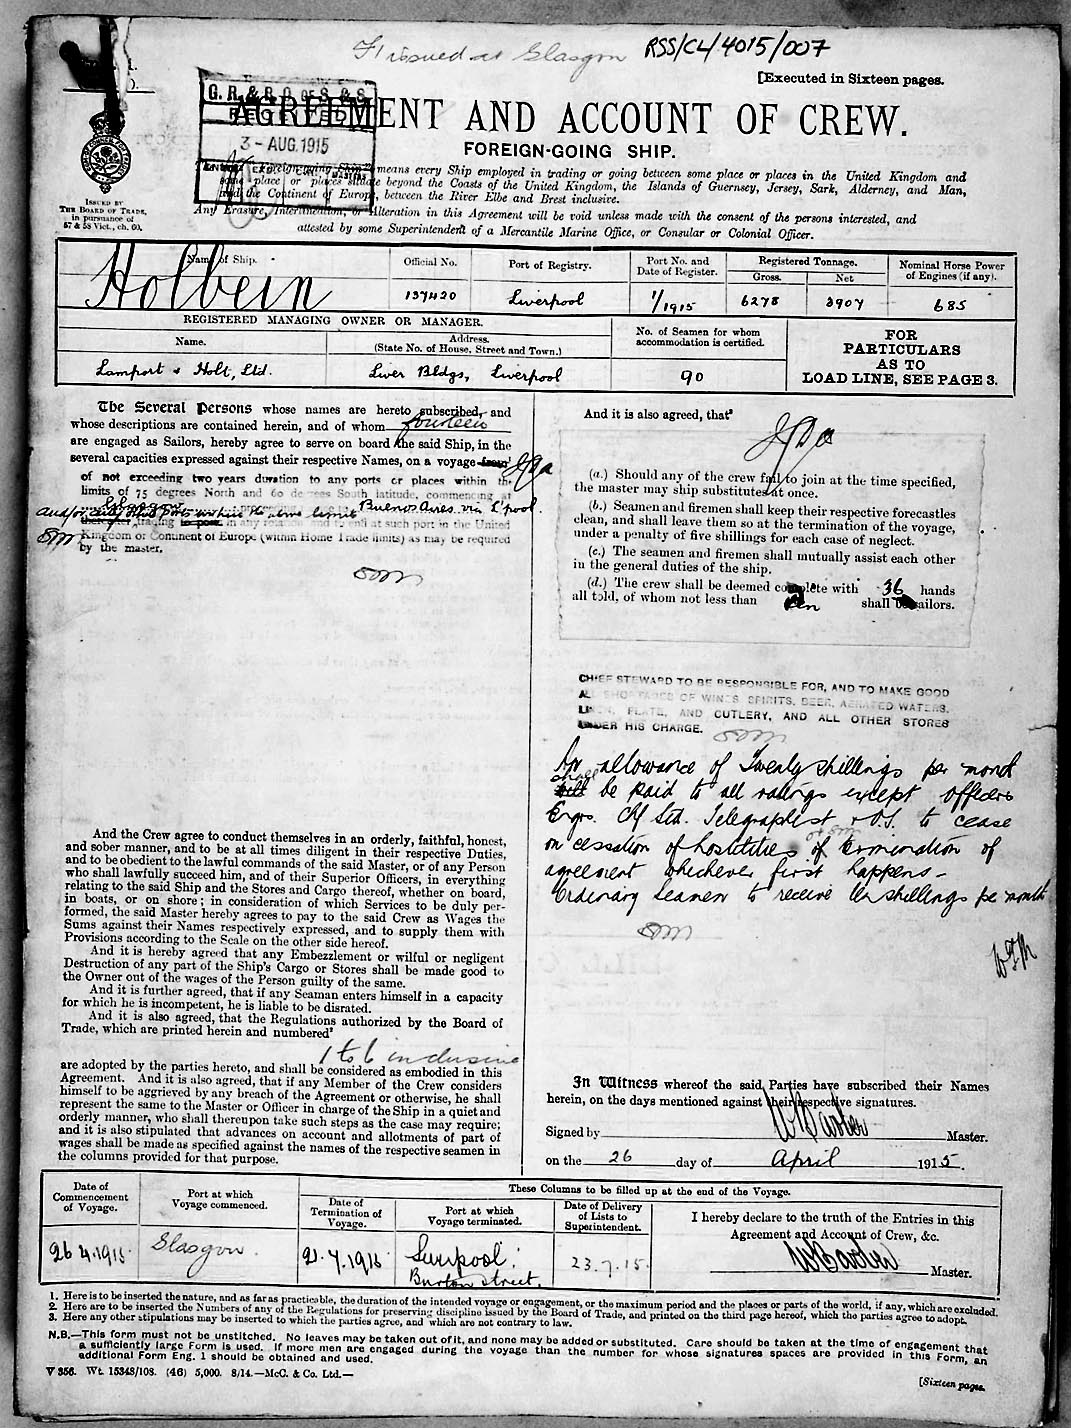 F1 issued at Glasgow RSS/CL/4015/007
[Executed in Sixteen pages.
G. R. & R. O. OF S & S
3 - AUG. 1915
AGREEMENT AND ACCOUNT OF CREW.
FOREIGN-GOING SHIP.
"Foreign-going Ship" means every Ship employed in trading or going between some place or places in the United Kingdom and
some place or places situate beyond the Coasts of the United Kingdom, the Islands of Guernsey, Jersey, Sark, Alderney, and Man,
and the Continent of Europe, between the River Elbe and Brest inclusive.
Any Erasure, Interlineation, or Alteration in this Agreement will be void unless made with the consent of the persons interested, and
attested by some Superintendent of a Mercantile Marine Office, or Consular or Colonial Officer.
ISSUED BY
THE BOARD OF TRADE,
in pursuance of
57 & 58 Vict., ch. 60.
Name of Ship. Official No. Port of Registry. Port No. and Date of Register. Registered Tonnage. Gross. Net Nominal Horse Power of Engines (if any).
Holbein 137420 Liverpool 1/1915 6278 3907 685
REGISTERED MANAGING OWNER OR MANAGER.
Name. Address. (State No. of House, Street and Town.) No. of Seamen for whom accommodation is certified.
FOR PARTICULARS AS TO LOAD LINE, SEE PAGE 3.
Lamport & Holt, Ltd. Liver Bldgs, Liverpool 90
The Several Persons whose names are hereto subscribed, and
whose descriptions are contained herein, and of whom fourteen
are engaged as Sailors, hereby agree to serve on board the said Ship, in the
several capacities expressed against their respective Names, on a voyage from¹
of not exceeding two years duration to any ports or places within the
limits of 75 degrees North and 60 degrees South latitude, commencing at
Glasgow Buenos Aires via L'pool.
and/or any other Ports within the above limits
trading in any rotation and to end at such port in the United
Kingdom or Continent of Europe (within Home Trade limits) as may be required
by the master.
And the Crew agree to conduct themselves in an orderly, faithful, honest,
and sober manner, and to be at all times diligent in their respective Duties,
and to be obedient to the lawful commands of the said Master, or of any Person
who shall lawfully succeed him, and of their Superior Officers, in everything
relating to the said Ship and the Stores and Cargo thereof, whether on board,
in boats, or on shore; in consideration of which Services to be duly per-
formed, the said Master hereby agrees to pay to the said Crew as Wages the
Sums against their Names respectively expressed, and to supply them with
Provisions according to the Scale on the other side hereof.
And it is hereby agreed that any Embezzlement or wilful or negligent
Destruction of any part of the Ship's Cargo or Stores shall be made good to
the Owner out of the wages of the Person guilty of the same.
And it is further agreed, that if any Seaman enters himself in a capacity
for which he is incompetent, he is liable to be disrated.
And it is also agreed, that the Regulations authorized by the Board of
Trade, which are printed herein and numbered²
1 to 6 inclusive
are adopted by the parties hereto, and shall be considered as embodied in this
Agreement. And it is also agreed, that if any Member of the Crew considers
himself to be aggrieved by any breach of the Agreement or otherwise, he shall
represent the same to the Master or Officer in charge of the Ship in a quiet and
orderly manner, who shall thereupon take such steps as the case may require;
and it is also stipulated that advances on account and allotments of part of
wages shall be made as specified against the names of the respective seamen in
the columns provided for that purpose.
And it is also agreed, that³
(a.) Should any of the crew fail to join at the time specified,
the master may ship substitutes at once.
(b.) Seamen and firemen shall keep their respective forecastles
clean, and shall leave them so at the termination of the voyage,
under a penalty of five shillings for each case of neglect.
(c.) The seamen and firemen shall mutually assist each other
in the general duties of the ship.
(d.) The crew shall be deemed complete with 36 hands
all told, of whom not less than ten shall be sailors.
CHIEF STEWARD TO BE RESPONSIBLE FOR, AND TO MAKE GOOD
ALL SHORTAGES OF WINES, SPIRITS, BEER, AERATED WATERS,
LINEN, PLATE, AND CUTLERY, AND ALL OTHER STORES
UNDER HIS CHARGE.
An allowance of Twenty shillings per month
shall be paid to all ratings except officers
Engrs. Ch Std. Telegraphist & O.S. to cease
on cessation of hostilities or termination of
agreement whichever first happens -
Ordinary Seamen to receive ten shillings per month
In Witness whereof the said Parties have subscribed their Names
herein, on the days mentioned against their respective signatures.
Signed by Master.
on the 26 day of April 1915.
Date of Commencement of Voyage. Port at which Voyage commenced. These Columns to be filled up at the end of the Voyage.
Date of Termination of Voyage. Port at which Voyage terminated. Date of Delivery of Lists to Superintendent.
I hereby declare to the truth of the Entries in this
Agreement and Account of Crew, &c.
26.4.1915. Glasgow. 21.7.1915 Liverpool. 23.7.15.
Burton Street. Master.
1. Here is to be inserted the nature, and as far as practicable, the duration of the intended voyage or engagement, or the maximum period and the places or parts of the world, if any, which are excluded.
2. Here are to be inserted the Numbers of any of the Regulations for preserving discipline issued by the Board of Trade, and printed on the third page hereof, which the parties agree to adopt.
3. Here any other stipulations may be inserted to which the parties agree, and which are not contrary to law.
N.B.—This form must not be unstitched. No leaves may be taken out of it, and none may be added or substituted. Care should be taken at the time of engagement that
a sufficiently large Form is used. If more men are engaged during the voyage than the number for whose signatures spaces are provided in this Form, an
additional Form Eng. 1 should be obtained and used.
V 356. Wt. 15348/108. (46) 5,000. 8/14.—McC. & Co. Ltd.—
[Sixteen pages.